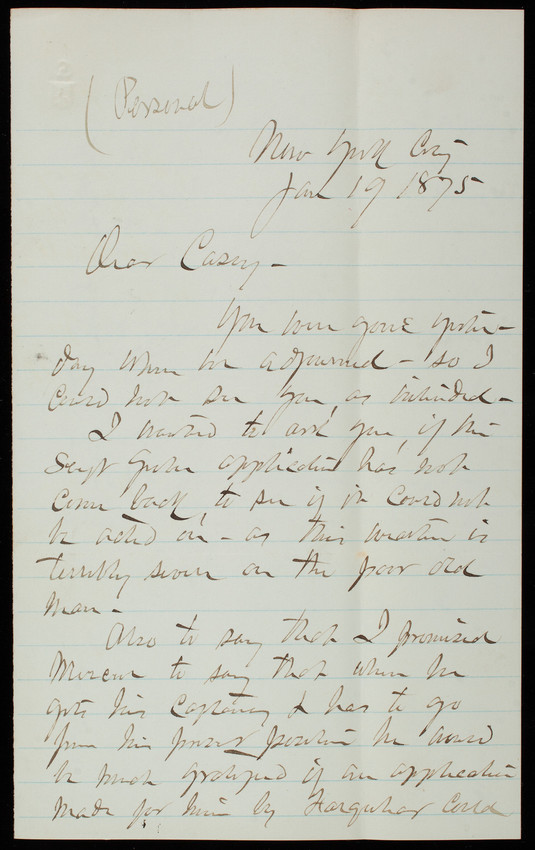 (Personal)
New York City
Jan 19 1875
Dear Casey -
You were gone yester-
day when we adjourned - so I
could not see you, as intended -
I wanted to ask you, if the
Sergt application has not
come back, to see if it could not
be acted on - as this weather is
terribly severe on the poor old
man -
Also to say that I promised
Mercur to say that when he
gets his Captaincy & has to go
from his present position he would
be much gratified if an application
made for him by Farquhar could